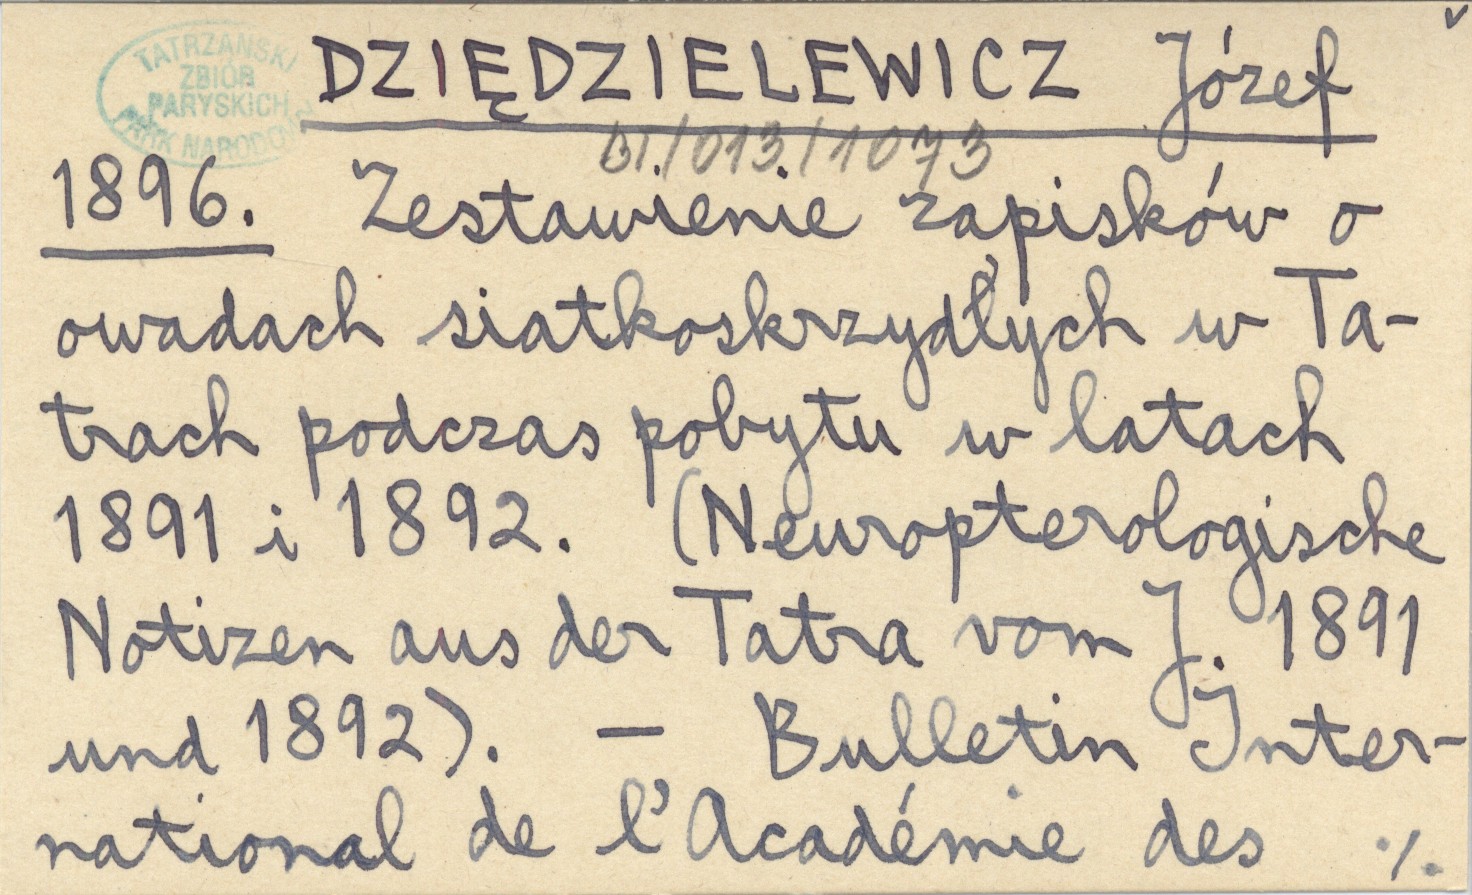 TATRZAŃSKI
ZBIÓR
PARYSKICH
PARK NARODOWY
DZIĘDZIELEWICZ Józef
B1/013/1073
1896. Zestawienie zapisków o
owadach siatkoskrzydłych w Ta-
trach podczas pobytu w latach
1891 i 1892. (Neuropterologische
Notizen aus der Tatra vom J. 1891
und 1892). – Bulletin Inter-
national de l'Académie des ./.